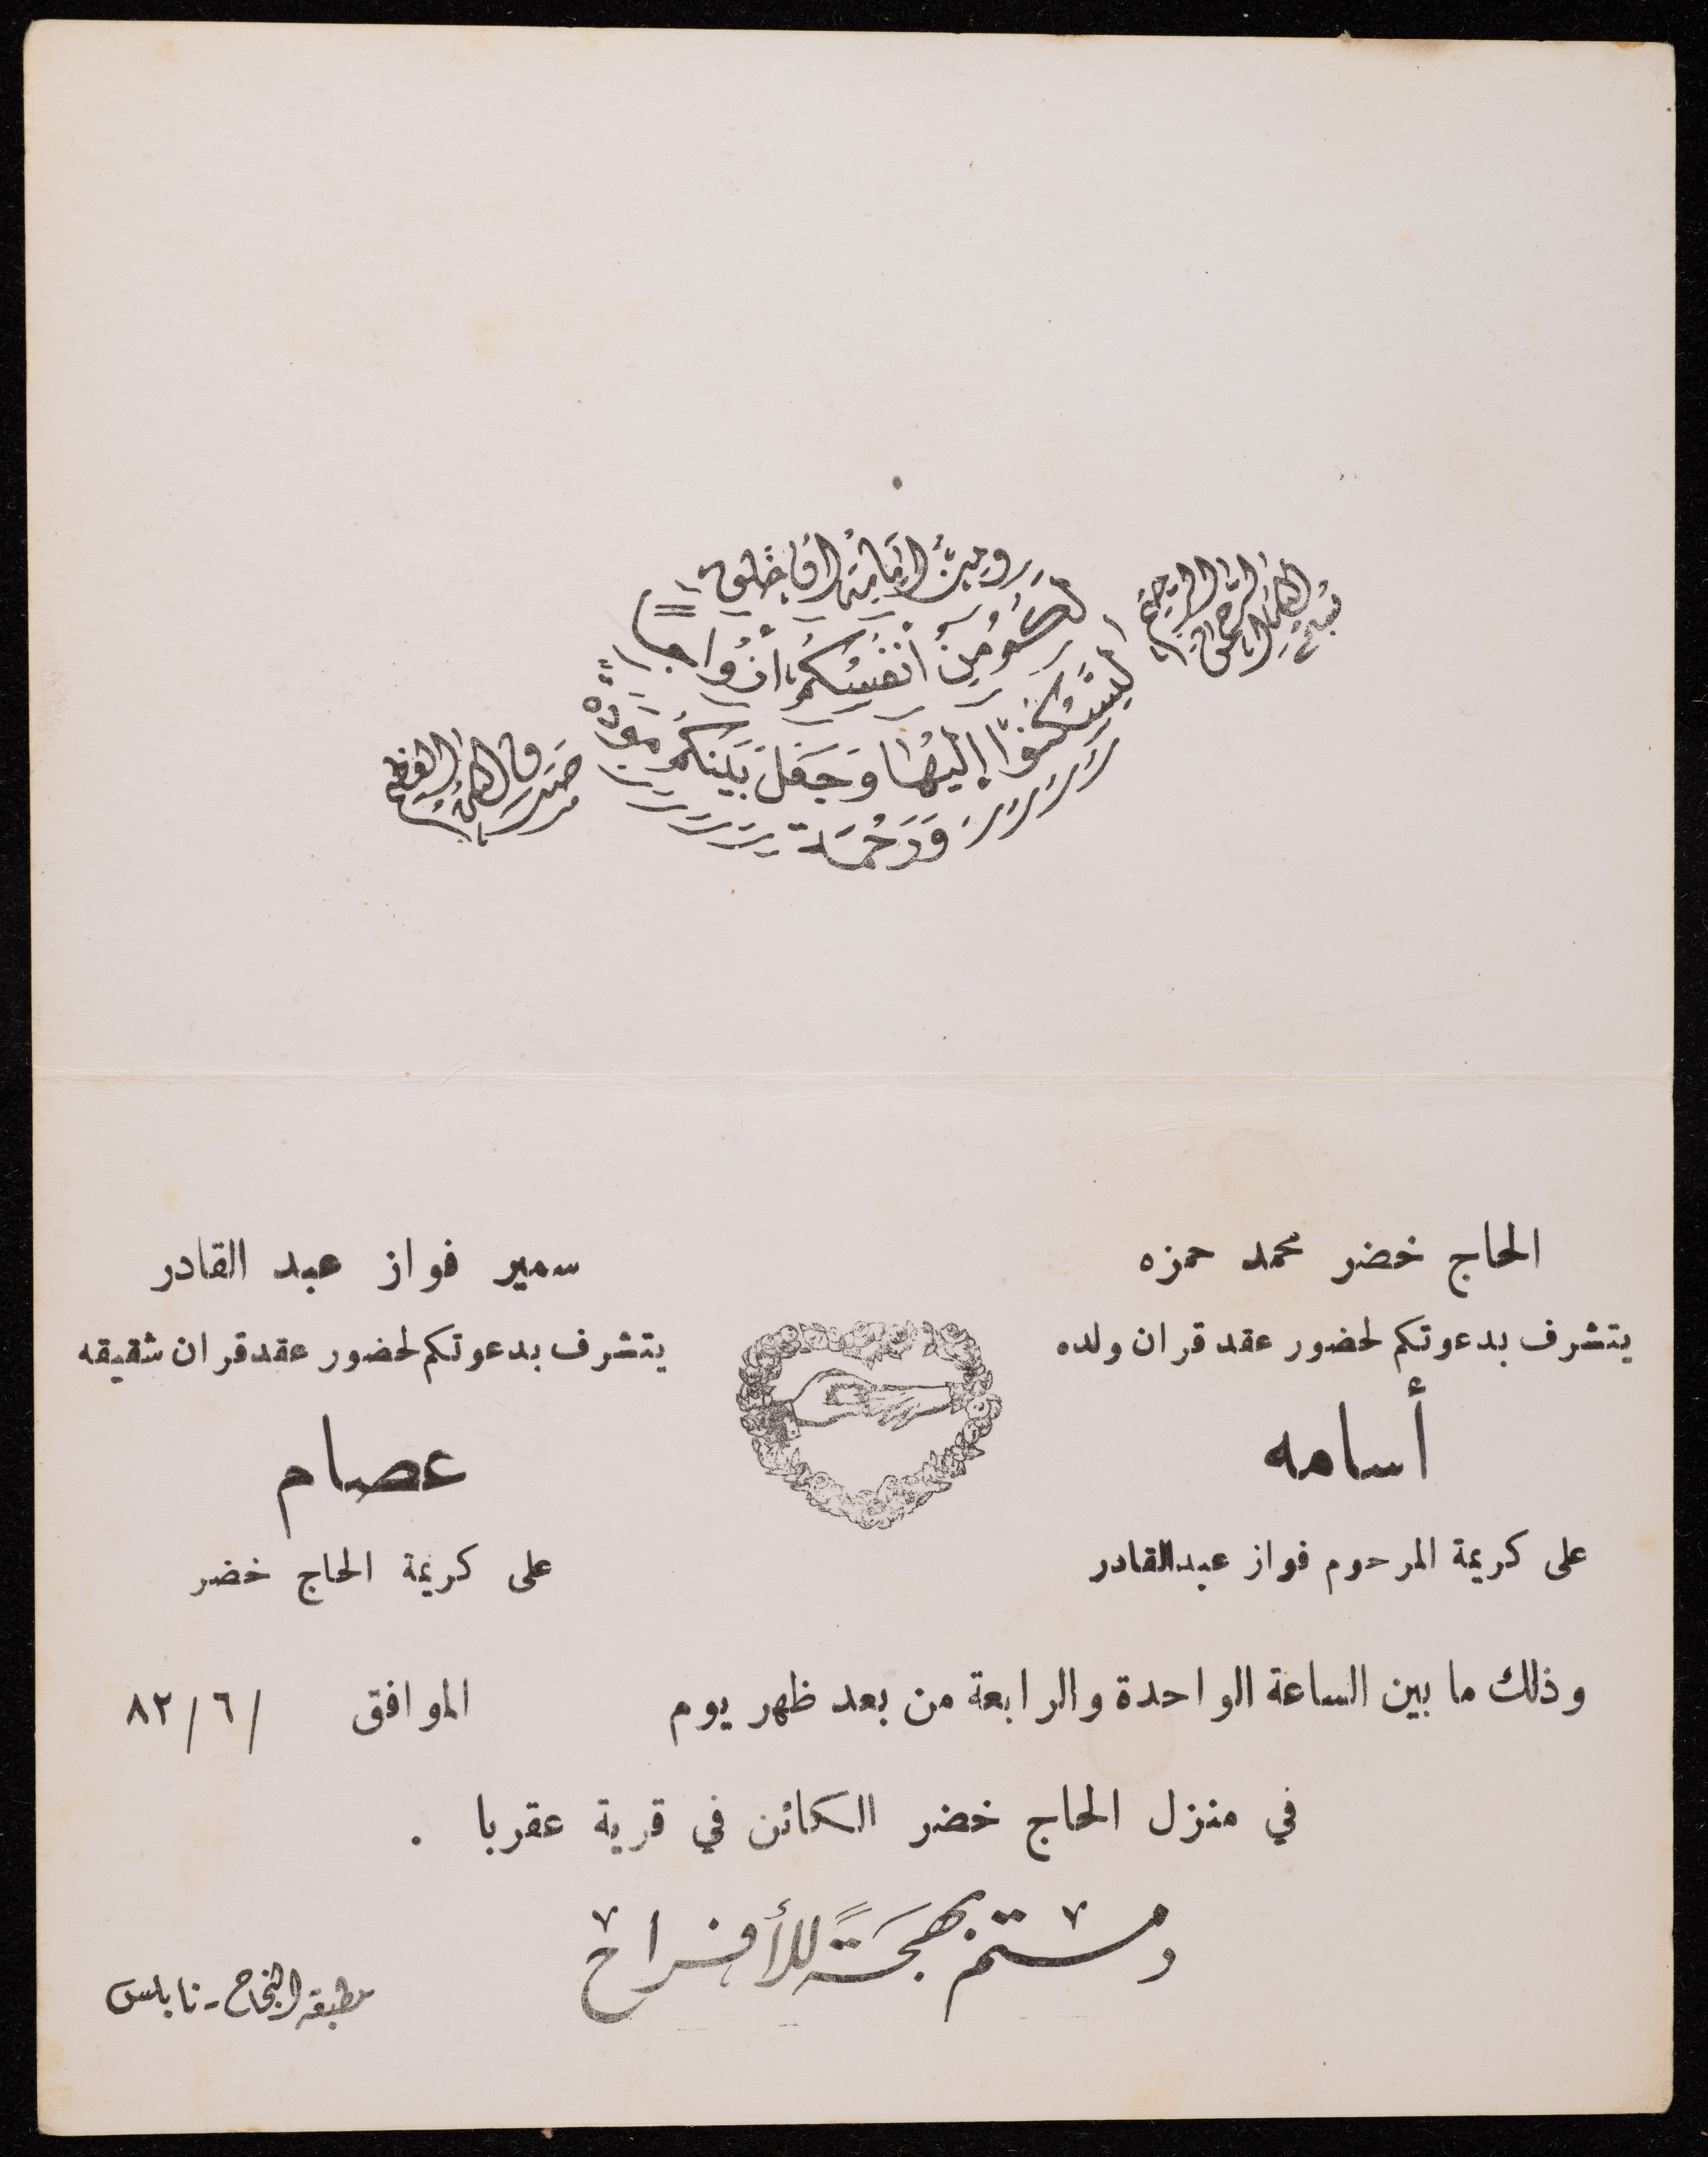 بسم الله الرحمن الرحيم
ومن آياته أن خلق
لكم من أنفسكم أزواجاً
لتسكنوا إليها وجعل بينكم مودة
ورحمة
صدق الله العظيم
الحاج خضر محمد حمزه
يتشرف بدعوتكم لحضور عقد قران ولده
أسامه
على كريمة المرحوم فواز عبدالقادر
سمير فواز عبد القادر
يتشرف بدعوتكم لحضور عقد قران شقيقه
عصام
على كريمة الحاج خضر
وذلك ما بين الساعة الواحدة والرابعة من بعد ظهر يوم الموافق / ٦ / ٨٢
في منزل الحاج خضر الكائن في قرية عقربا .
ودمتم بهجةً للأفراح
مطبعة النجاح - نابلس